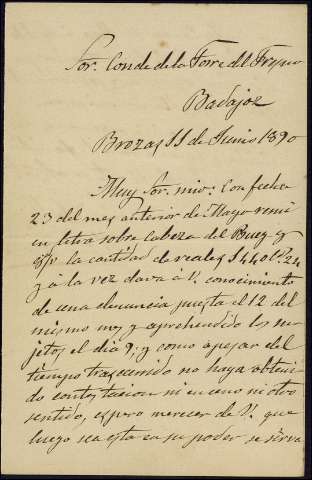 Sor. Conde de la Torre del Fresno
Badajoz
Brozas 11 de Junio 1890
Muy Sor. mio: Con fecha
23 del mes anterior de Mayo remi
en letra sobre Cabeza del Buey y
la cantidad de reales 1440
y á la vez dava á V. conocimiento
de una denuncia puesta el 12 del
mismo mes y aprehendido los su-
jetos el dia 9; y como apesar del
tiempo trascurrido no haya obteni-
do contestacion ni en uno ni otro
sentido, espero merecer de V. que
luego sea esta en su poder se sirva